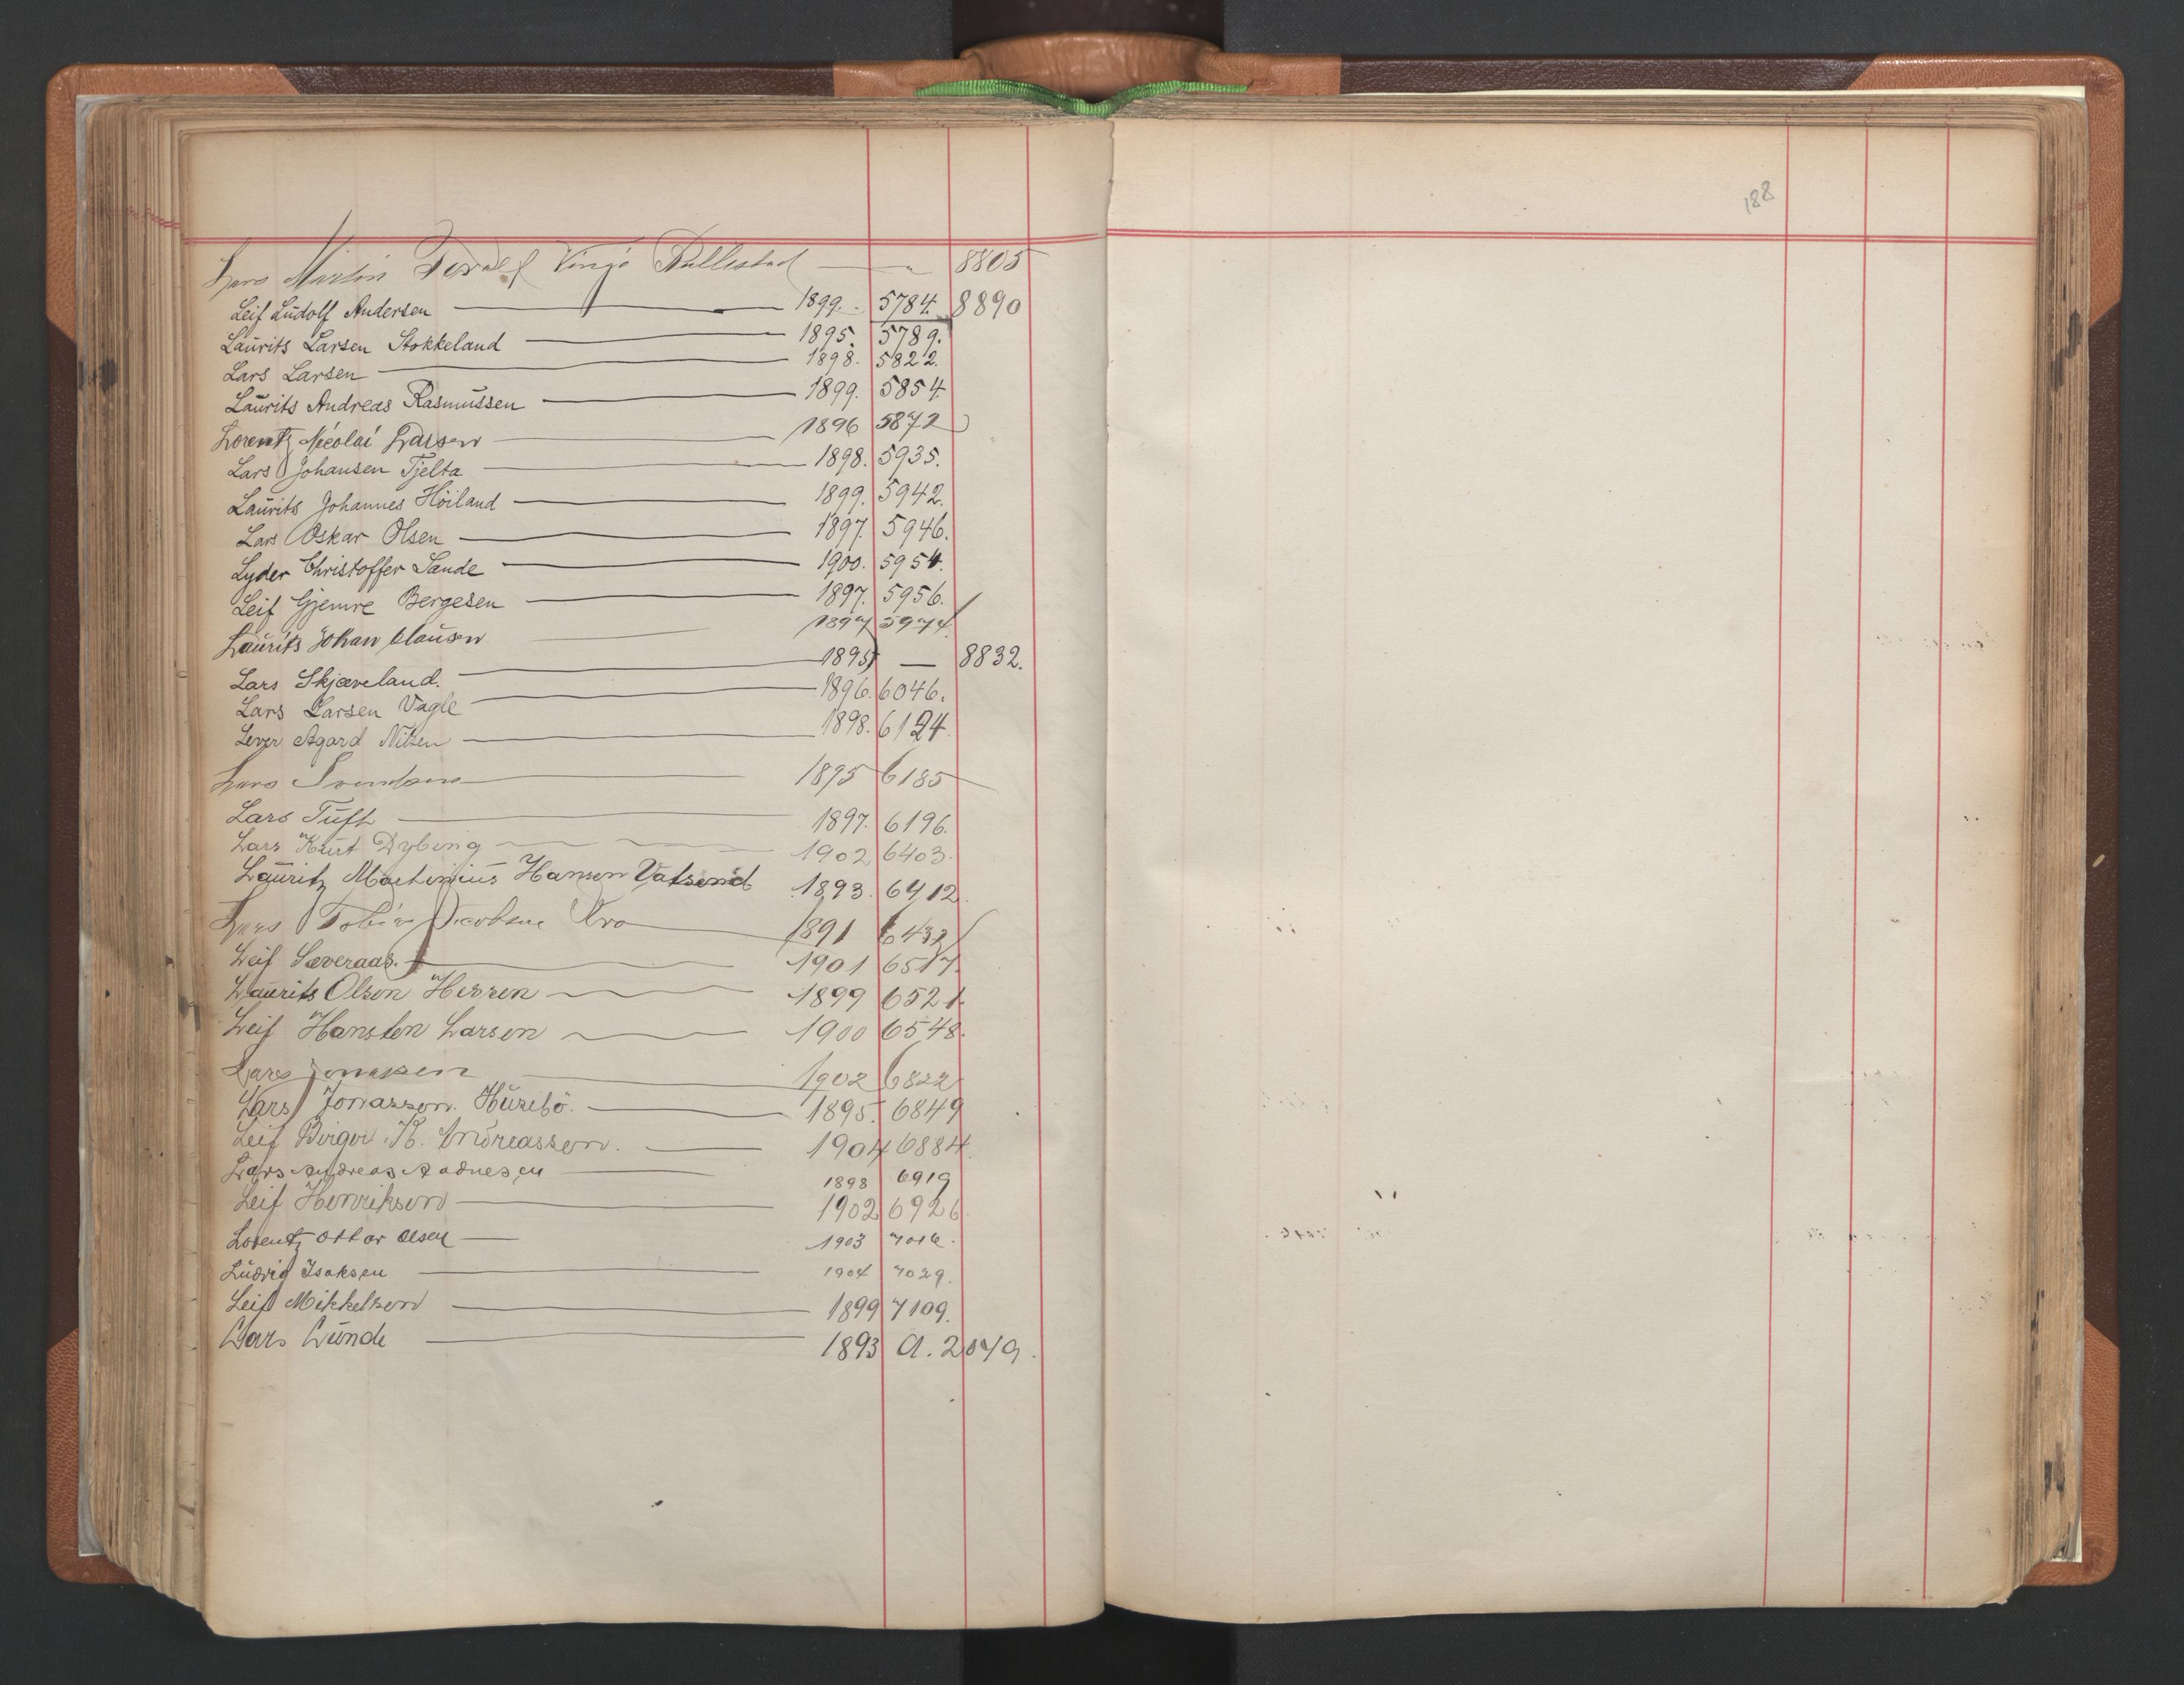 Lars Martin Toralf Vinje Bullestad — " 8805
Leif Ludolf Andersen — 1899. 5784. 8890
Laurits Larsen Stokkeland — 1895. 5789.
Lars Larsen — 1898. 5822.
Laurits Andreas Rasmussen — 1899. 5854.
Lorentz Nicolai Larsen — 1896 5872
Lars Johansen Tjelta — 1898. 5935.
Laurits Johannes Höiland — 1899. 5942.
Lars Oskar Olsen — 1897. 5946.
Lyder Christoffer Sande — 1900. 5954.
Leif Gjemre Bergesen — 1897. 5956.
Laurits Johan Clausen — 1897 5974.
Lars Skjæveland. — 1895 — 8832.
Lars Larsen Vagle — 1896. 6046.
Lever Agard Nilsen — 1898. 6124
Lars Svendsen — 1895 6185
Lars Tuft — 1897. 6196.
Lars Kurt Dybing — 1902 6403.
Lauritz Martinius Hansen Vatsend 1893. 6412.
Lars Tobias Jacobsen Kro — 1891 6432
Leif Sæveraas. — 1901 6517.
Laurits Olsen Herren — 1899 6521.
Leif Hansten Larsen — 1900 6548.
Lars Jonassen — 1902 6822
Lars Jonassen. Husebö. — 1895. 6849
Leif Birger K. Andreassen. — 1904 6884.
Lars Andreas Aadnesen — 1898 6919
Leif Henriksen — 1902 6926
Lorentz Ottar Olsen — 1903 7016.
Ludvig Isaksen — 1904 7029.
Leif Mikkelsen — 1899 7109.
Lars Lunde — 1893 A. 2079.
188